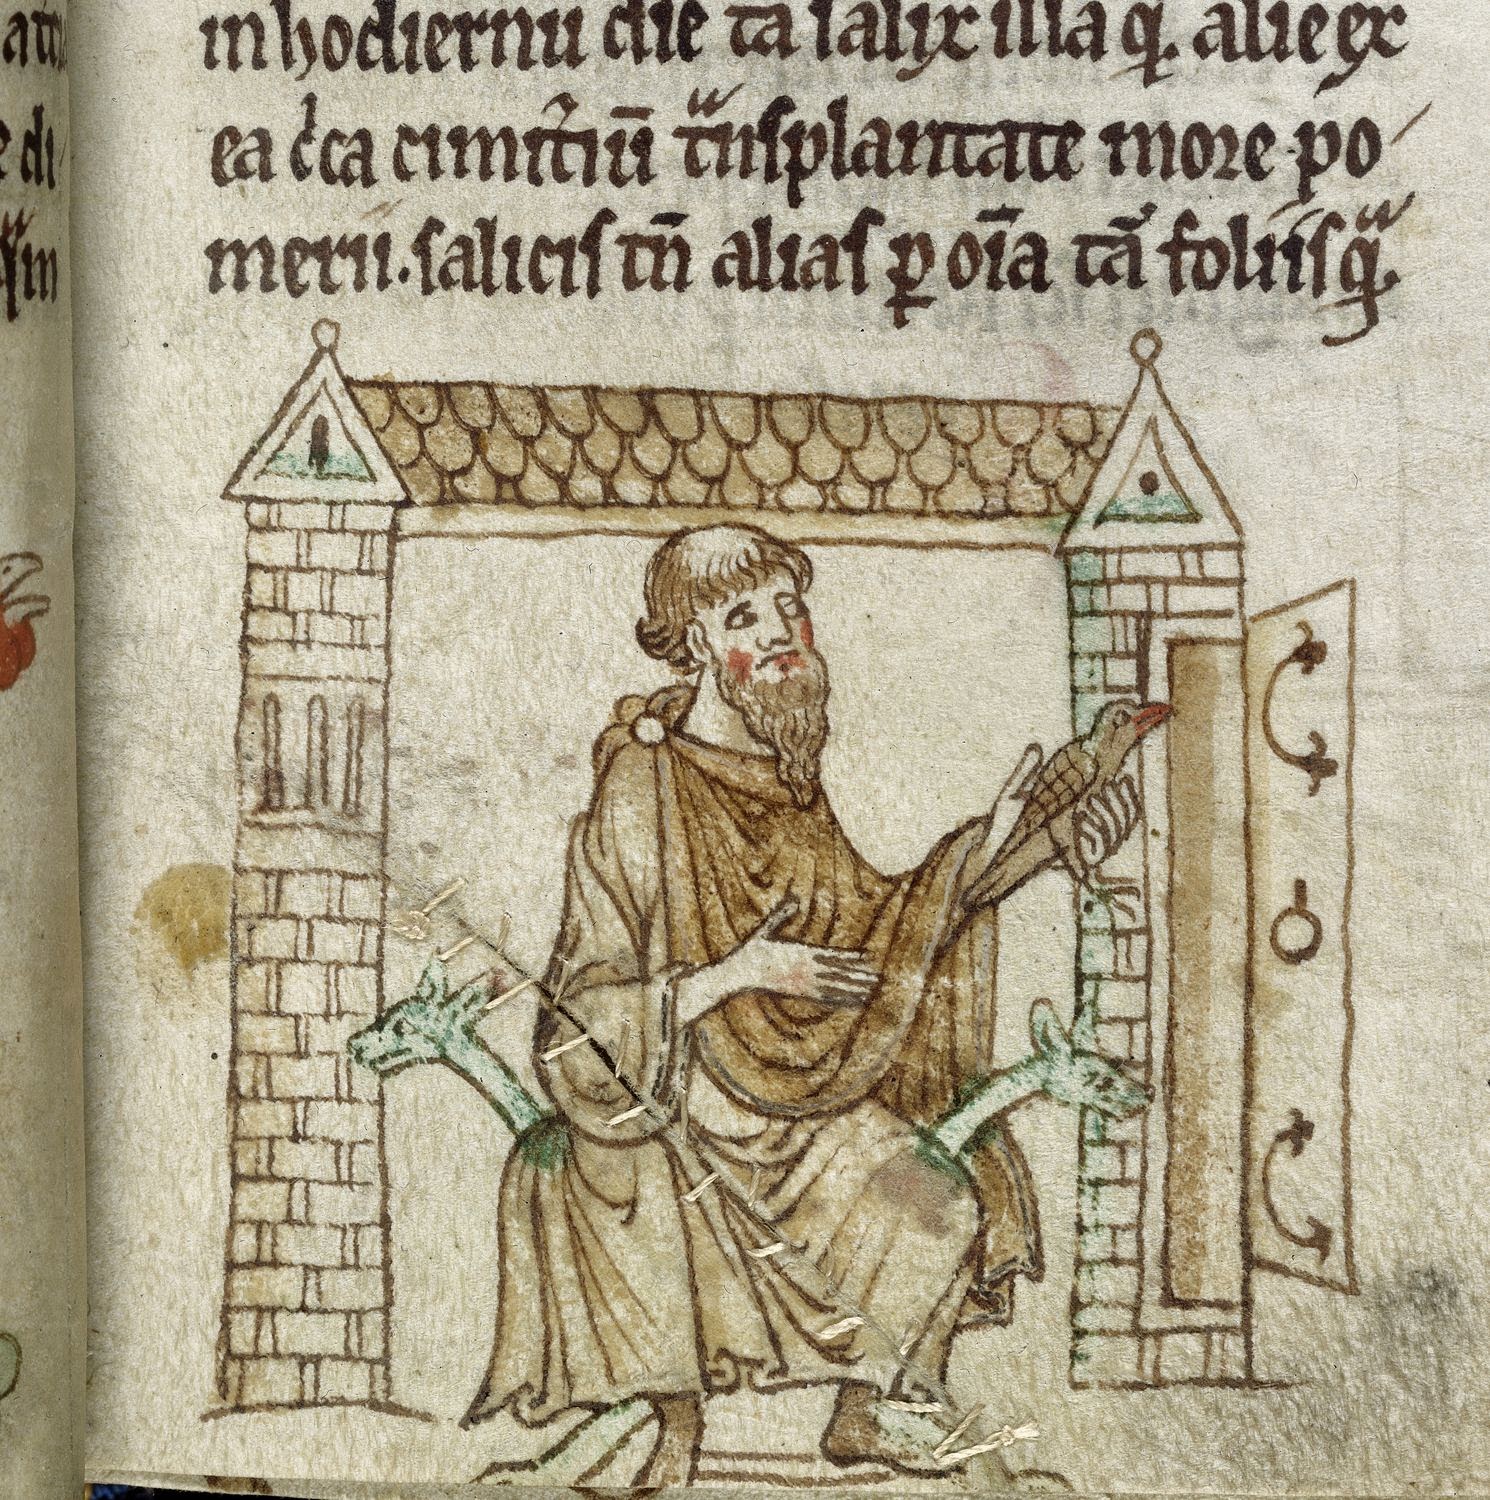 in hodiernū diē ta salix illa q̣. alie ex
ea c̓ca cimit̓iū t̾nsplantate more po
merii. salicis tn̄ alias ꝑ oīa tā foliisq̣.